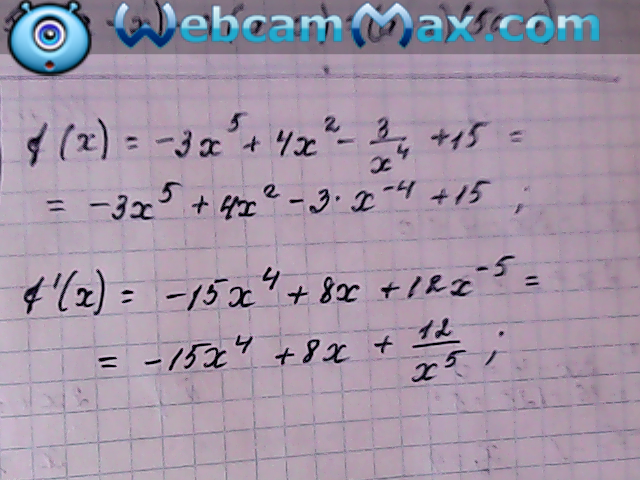 WebcamMax.com
f(x) = -3x^5 + 4x^2 - 3/x^4 + 15 =
= -3x^5 + 4x^2 - 3 · x^-4 + 15 ;
f'(x) = -15x^4 + 8x + 12x^-5 =
= -15x^4 + 8x + 12/x^5 ;